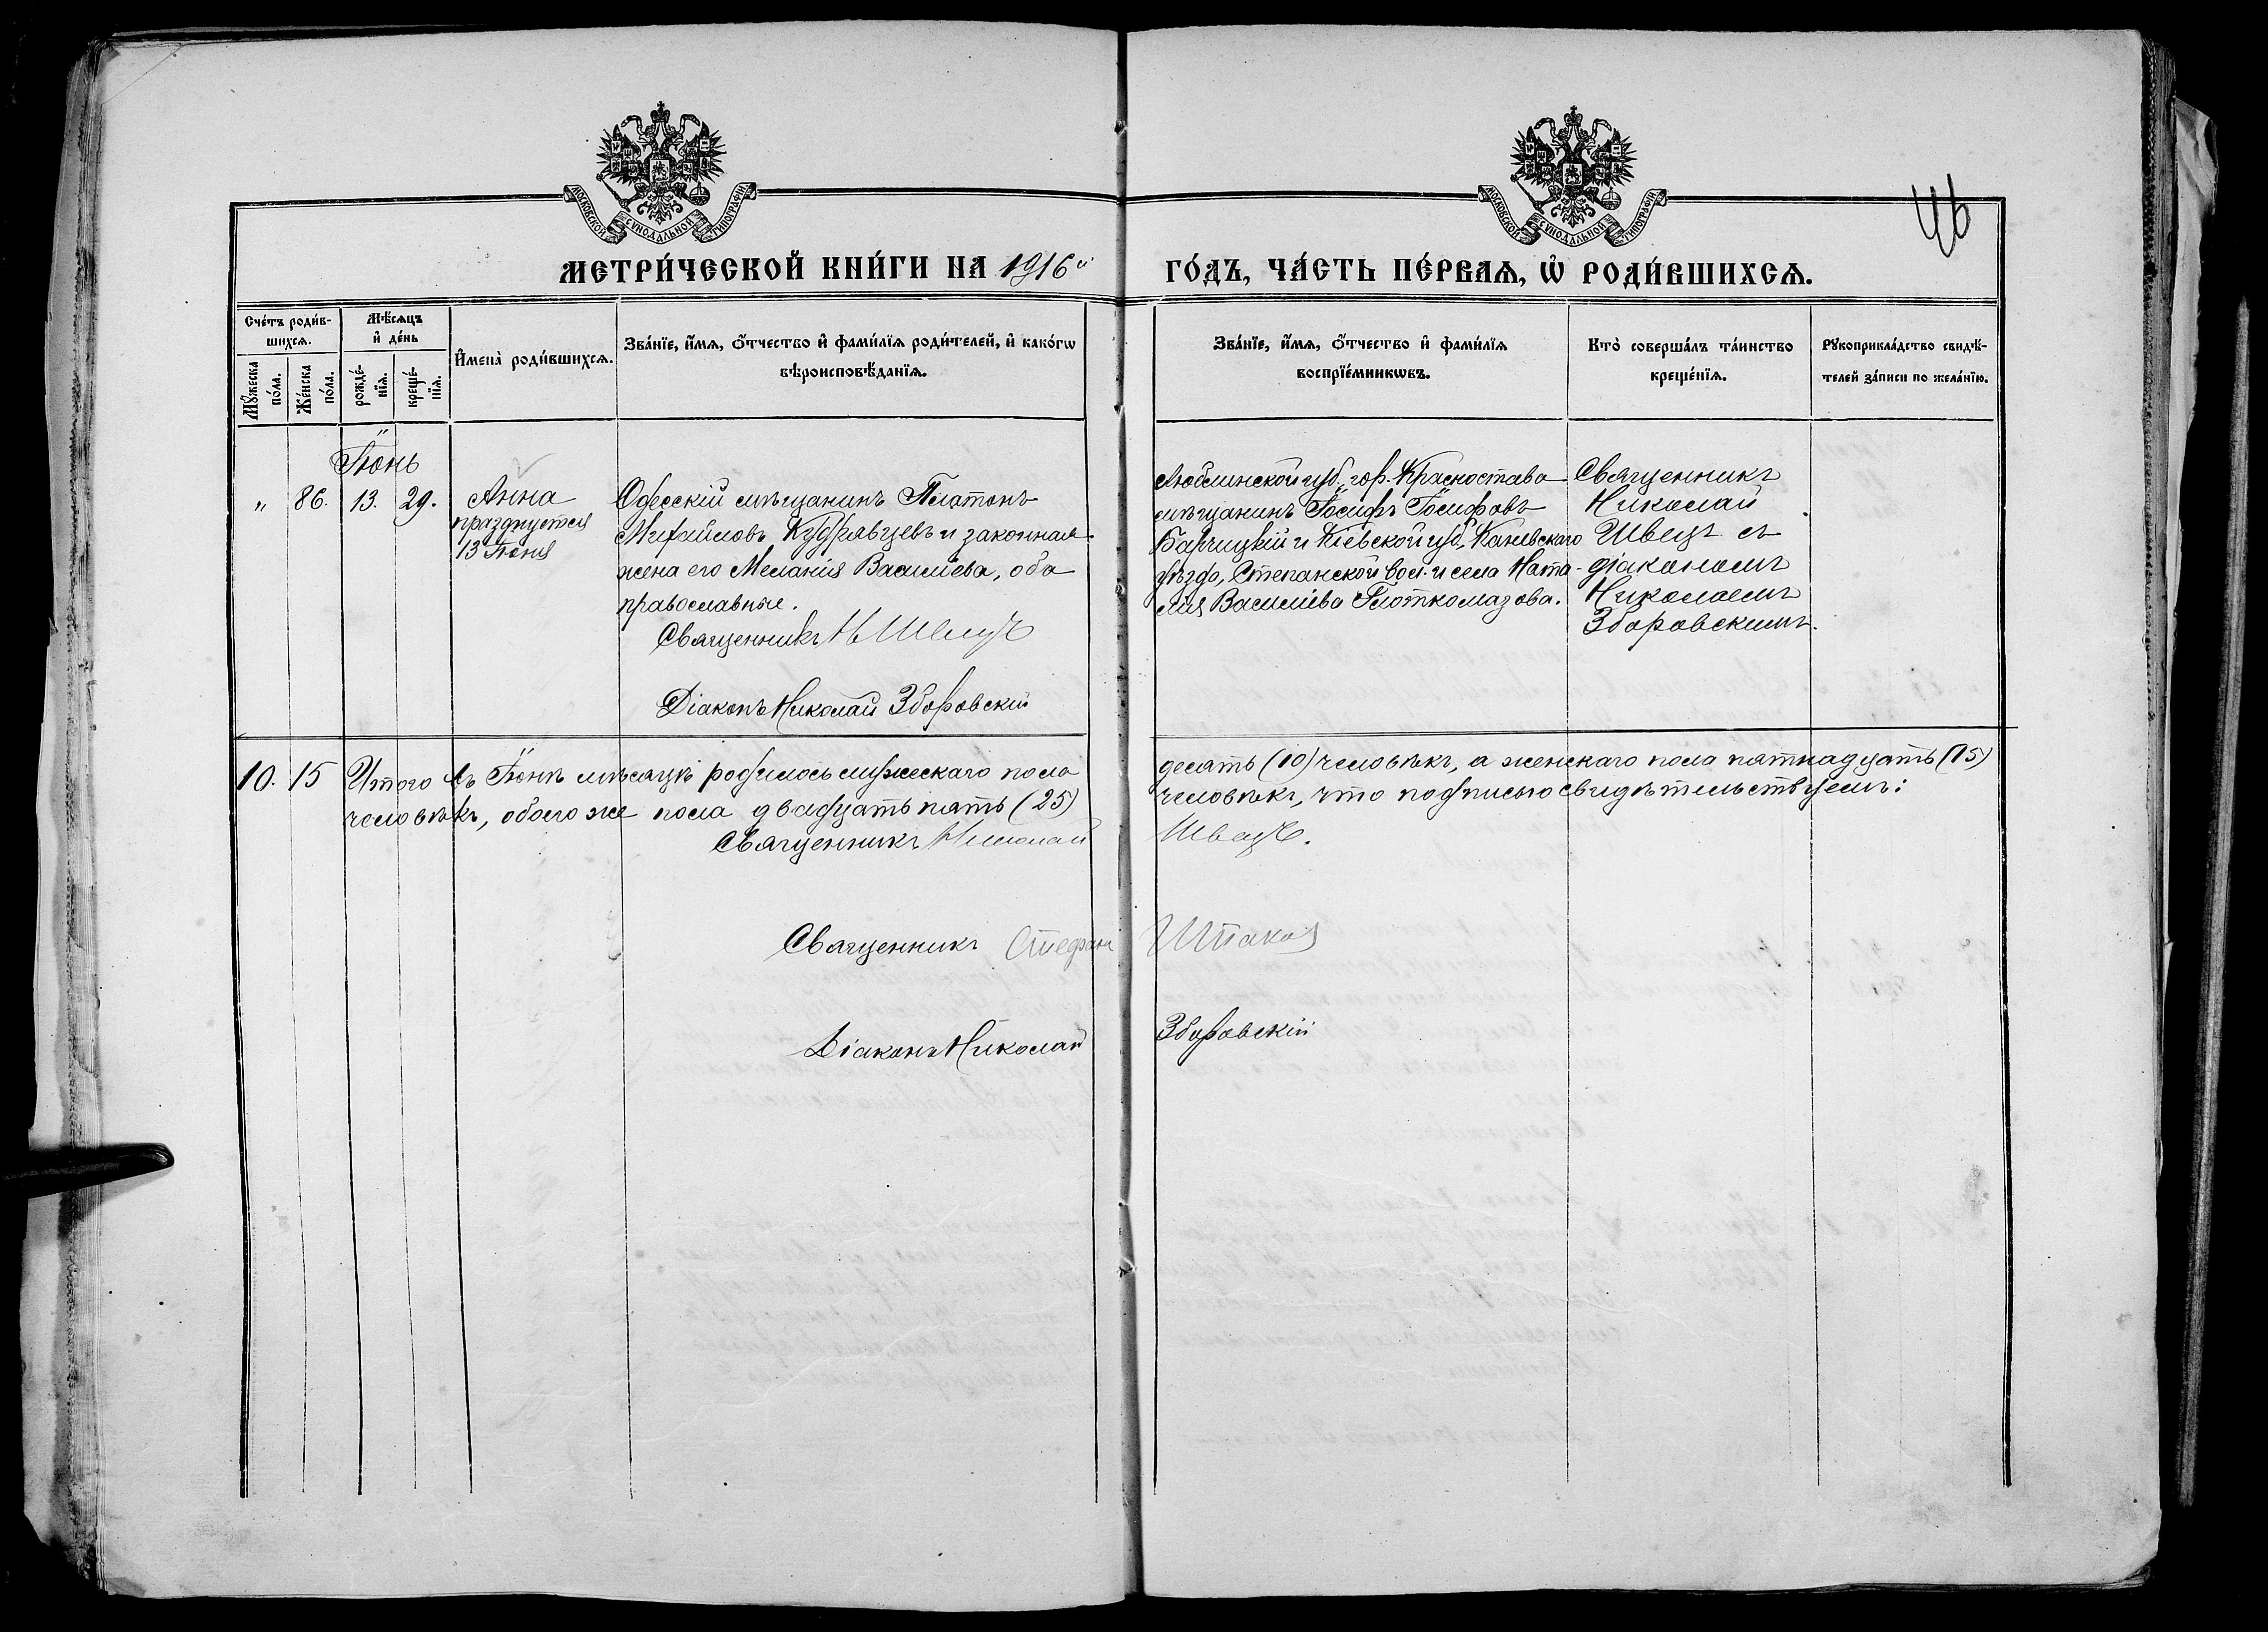 МОСКОВСКОЙ СѴНОДАЛЬНОЙ ТИПОГРАФІИ
МОСКОВСКОЙ СѴНОДАЛЬНОЙ ТИПОГРАФІИ
46
МЕТРИ́ЧЕСКОЙ КНИ́ГИ НА 1916й
ГО́ДЪ, ЧА́СТЬ ПЕ́РВАѦ, Ѡ҆ РОДИ́ВШИХСѦ.
Сче́тъ роди́в-
шихсѧ.
Мꙋ́жеска по́ла.
Же́нска по́ла.
Мѣ́сѧцъ
и҆ де́нь
рожде́-
нїѧ.
креще́-
нїѧ.
И҆мена̀ роди́вшихсѧ.
Зва́нїе, и҆́мѧ, ѻ҆́тчество и҆ фами́лїѧ роди́телей, и҆ како́гѡ
вѣроисповѣ́данїѧ.
Зва́нїе, и҆́мѧ, ѻ҆́тчество и҆ фами́лїѧ
воспрїе́мникѡвъ.
Кто̀ соверша́лъ та́инство
креще́нїѧ.
Рꙋкоприкла́дство свидѣ́-
телей за́писи по жела́нїю.
Іюнь
" 86. 13. 29.
Анна
празднуется
13 Іюня
Одесскій мѣщанинъ Платонъ
Михайловъ Кудрявцевъ и законная
жена его Меланія Василіева, оба
православные.
Священникъ Н Швецъ
Діаконъ Николай Зборовскій
Люблинской губ., гор. Красностава
мѣщанинъ Іосифъ Іосифовъ
и Кіевской губ., Каневскаго
уѣзда, Степанской вол. и села Ната-
лія Василіева
Священникъ
Николай
Швецъ съ
діакономъ
Николаемъ
Зборовскимъ.
10. 15 Итого въ Іюнѣ мѣсяцѣ родилось мужескаго пола
десять (10) человѣкъ, а женскаго пола пятнадцать (15)
человѣкъ, обоего же пола двадцать пять (25)
человѣкъ, что подписью свидѣтельствуемъ:
Священникъ Николай Швецъ.
Священникъ Стефан
Діаконъ Николай Зборовскій